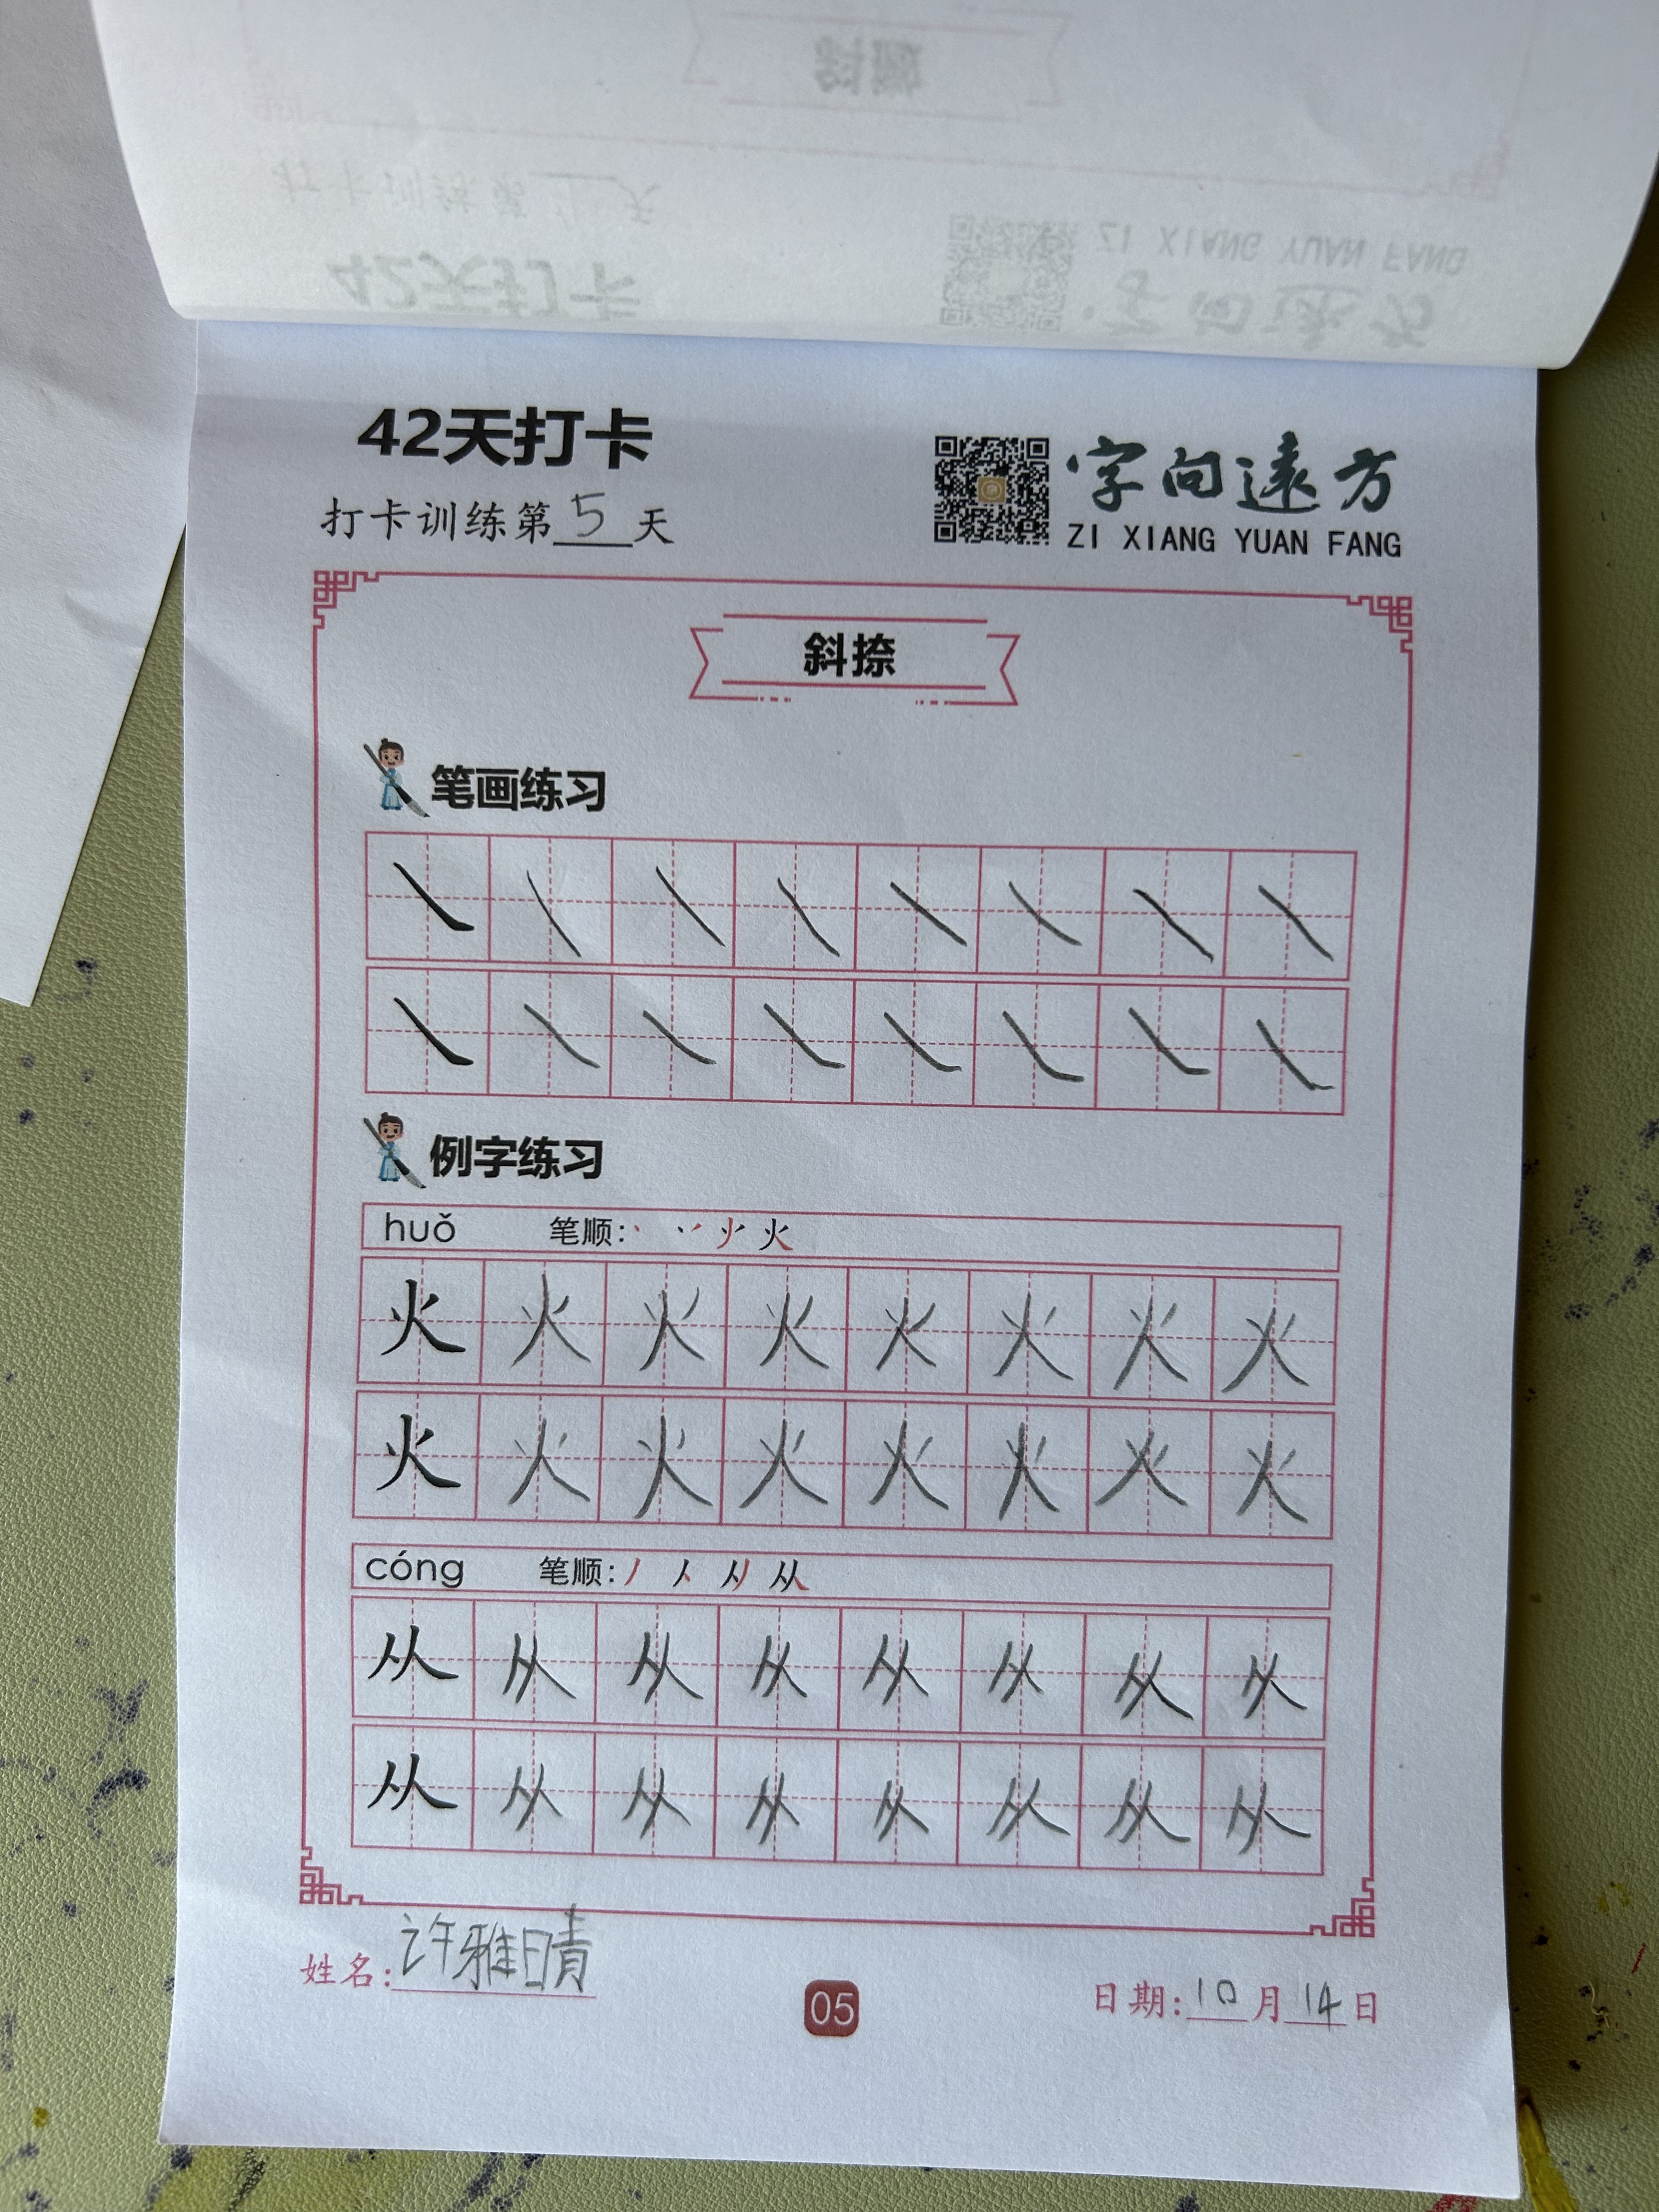 42天打卡
打卡训练第5天
字向遠方
ZI XIANG YUAN FANG
斜捺
笔画练习
例字练习
huǒ 笔顺: 火
火 火 火 火 火 火 火 火
火 火 火 火 火 火 火 火
cóng 笔顺: 丿 人 从
从 从 从 从 从 从 从 从
从 从 从 从 从 从 从 从
姓名: 许雅晴
05
日期: 10月14日